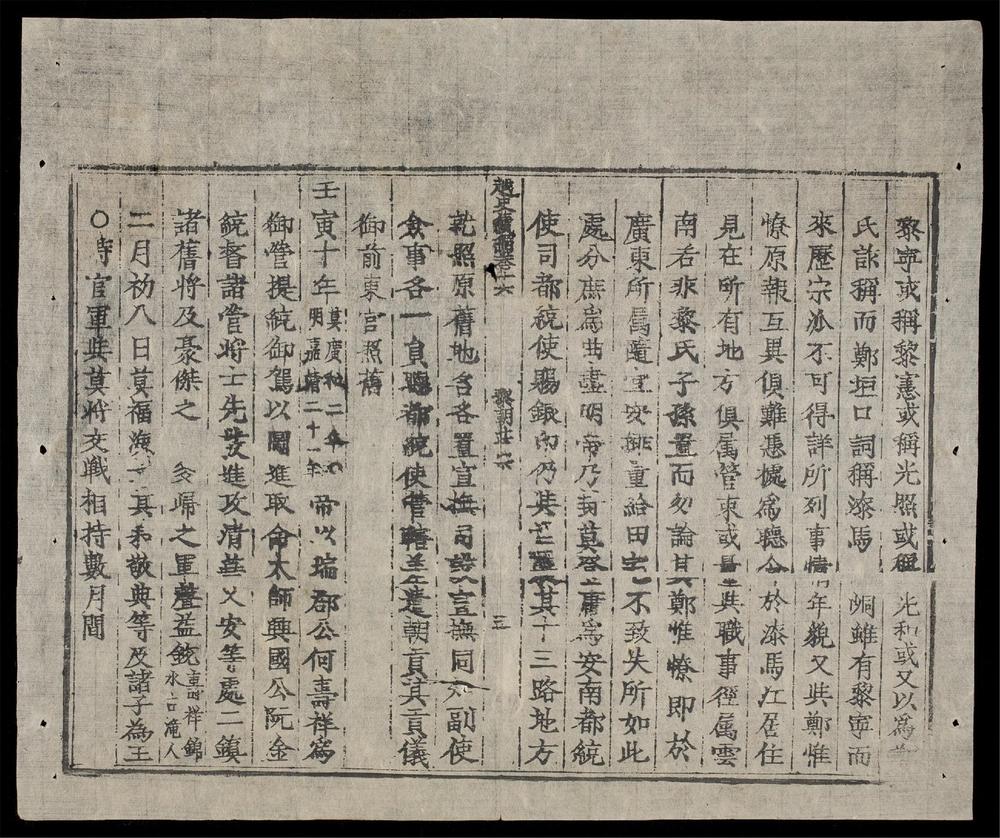 黎寧或稱黎憲或稱光照或稱光和或又以為
氏詠稱而鄭垣口詞稱漆馬峒雖有黎寧而
來歷宗派不可得詳所列事情年貌又與鄭惟
憭原報互異俱難憑據為聽令於漆馬江居住
見在所有地方俱属管束或量其職事徑属雲
南若非黎氏子孫置而勿論其鄭惟憭即於
廣東所属隨宜安揷量給田宅不致失所如此
處分庶為曲盡明帝乃封莫登庸為安南都統
使司都統使賜銀印仍其其十三路地方
越史續編卷十六
黎朝莊六
三
乾照原舊地名各置宣撫司設宣撫同知副使
僉事各一員聽都統使管轄差遣朝貢其貢儀
御前東宫照舊
壬寅十年莫廣和二年
明嘉靖二十一年
帝以瑞郡公何壽祥為
御營提統御駕以圖進取命太師興國公阮金
統督諸營將士先發進攻清華乂安等處二鎮
諸舊將及豪傑之多歸之軍聲益銳
壽祥錦
水古滝人
二月初八日莫福海其弟敬典等及諸子為王
○時官軍與莫將交戰相持數月間